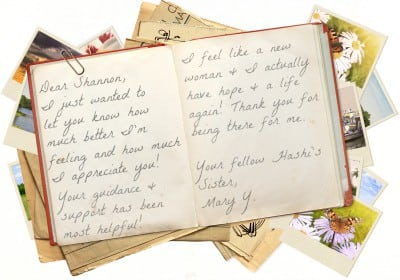 Dear Shannon,
I just wanted to
let you know how
much better I'm
feeling and how much
I appreciate you!
Your guidance &
support has been
most helpful!
I feel like a new
woman & I actually
have hope & a life
again! Thank you for
being there for me.
Your fellow Hashi's
Sister,
Mary Y.